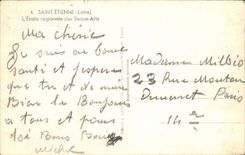 4 SAINT-ÉTIENNE (Loire)
L'École régionale des Beaux-Arts
Ma chérie
Je suis en bonne
santé et j'espère
que tu et de même
Bien le Bonjour
a tous et pour
toi Bons Bons
Michel
Madame Milbio
23 Rue Moutan
Duvernet Paris
14e